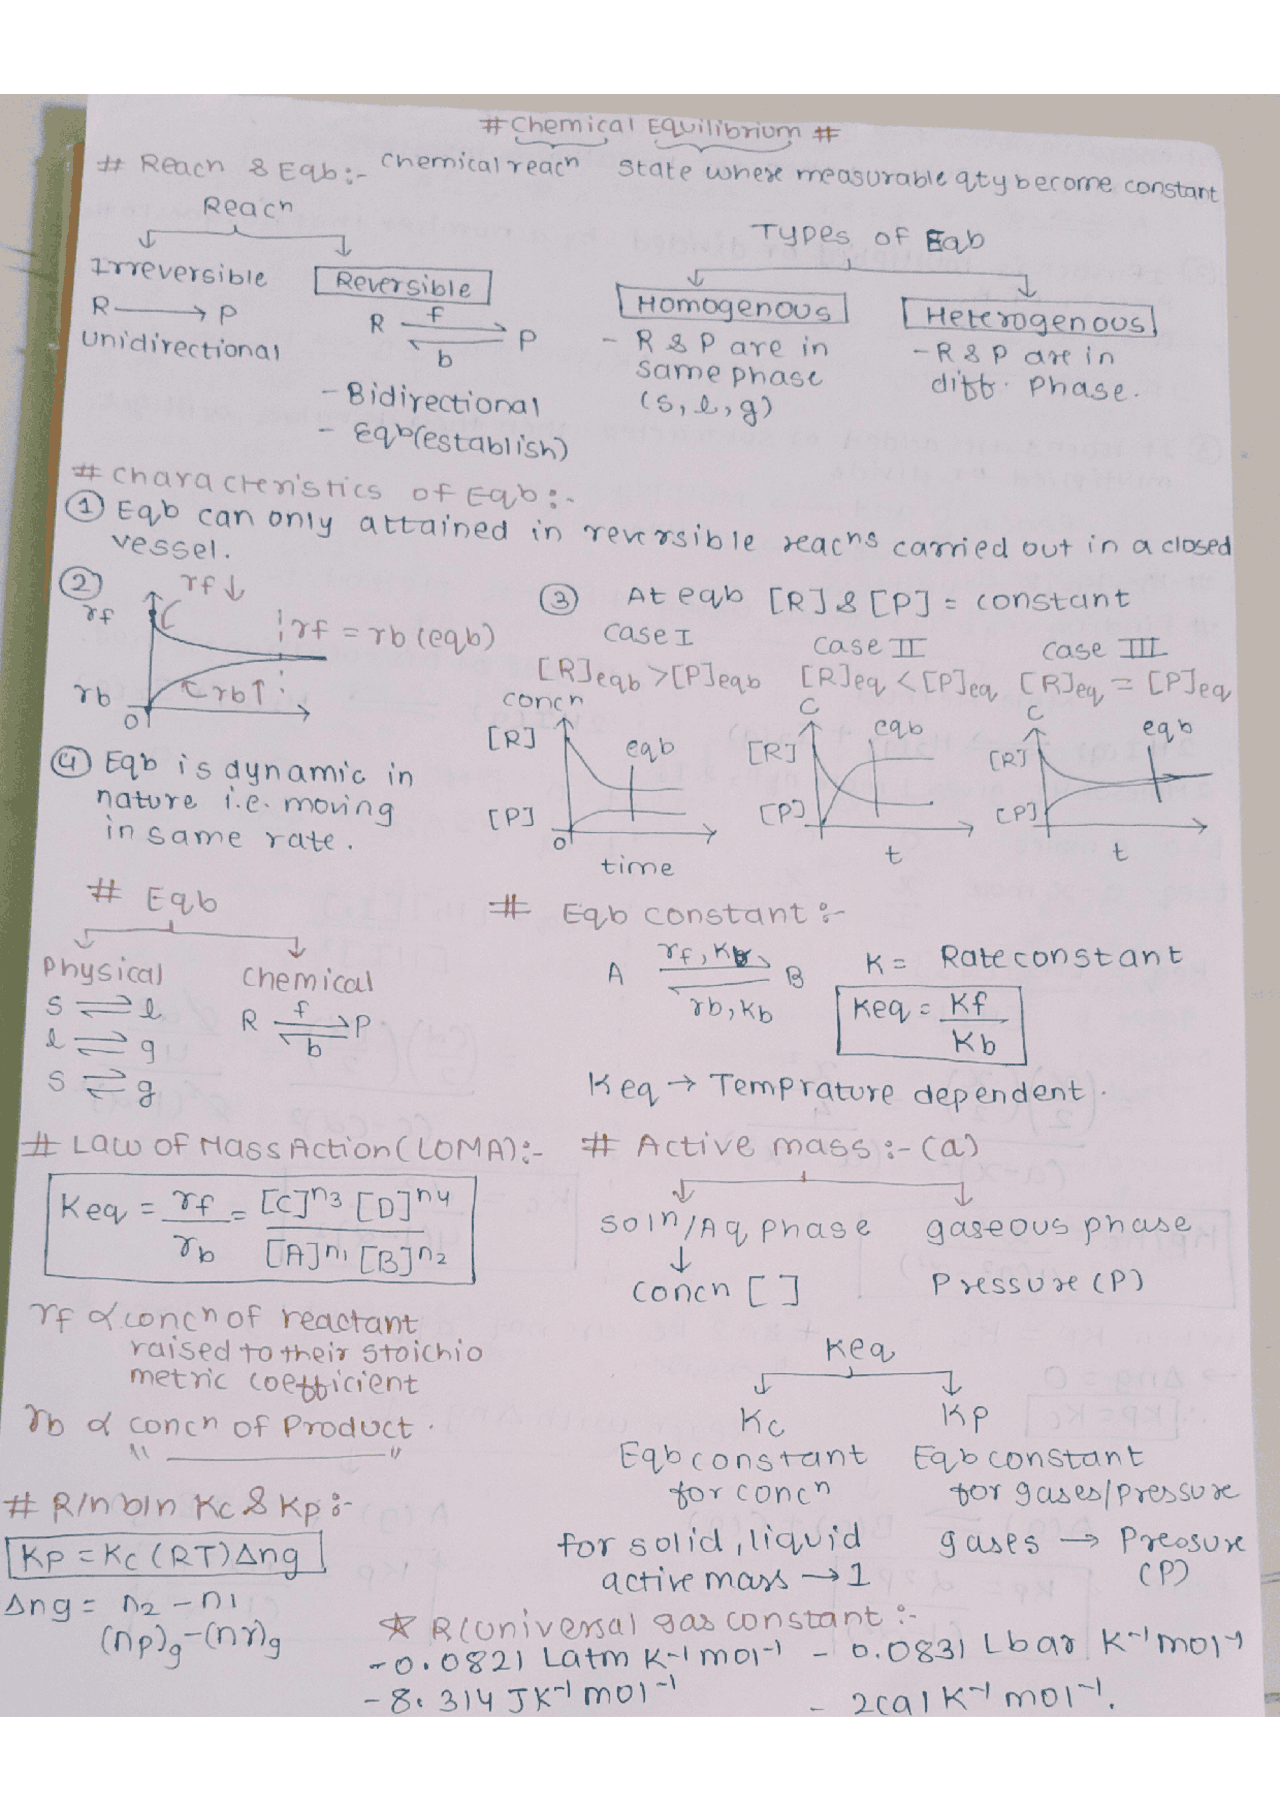 # Chemical Equilibrium #
# Reacn & Eqb :- Chemical reacn State where measurable qty become constant
Reacn
Irreversible
R → P
Unidirectional
Reversible
R ⇌ P
f
b
- Bidirectional
- Eqb (establish)
Types of Eqb
Homogenous
- R & P are in
same phase
(s, l, g)
Heterogenous
- R & P are in
diff. phase.
# Characteristics of Eqb :-
① Eqb can only attained in reversible reacns carried out in a closed
vessel.
②
rf ↓
rf
rf = rb (eqb)
rb
rb ↑
0
③ At eqb [R] & [P] = constant
Case I
[R]eqb > [P]eqb
concn
[R]
eqb
[P]
0
time
Case II
[R]eq < [P]eq
C
eqb
[R]
[P]
t
Case III
[R]eq = [P]eq
C
eqb
[R]
[P]
t
④ Eqb is dynamic in
nature i.e. moving
in same rate.
# Eqb
Physical
s ⇌ l
l ⇌ g
s ⇌ g
Chemical
R ⇌ P
f
b
# Eqb constant :-
rf, K
A ⇌ B
rb, Kb
K = Rate constant
Keq = Kf
Kb
Keq → Temprature dependent.
# Law of Mass Action (LOMA) :-
Keq = rf/rb = [C]n3 [D]n4 / [A]n1 [B]n2
rf ∝ concn of reactant
raised to their stoichio
metric coefficient
rb ∝ concn of Product.
" ———— "
# Active mass :- (a)
soln/Aq phase
↓
Concn [ ]
gaseous phase
Pressure (P)
Keq
Kc
Eqb constant
for concn
for solid, liquid
active mass → 1
Kp
Eqb constant
for gases/pressure
gases → Preosure
(P)
# R/n b/n Kc & Kp :-
Kp = Kc (RT)Δng
Δng = n2 - n1
(np)g - (nr)g
☆ R (Universal gas constant :-
- 0.0821 Latm K-1 mol-1 - 0.0831 L bar K-1 mol-1
- 8.314 JK-1 mol-1 - 2cal K-1 mol-1.